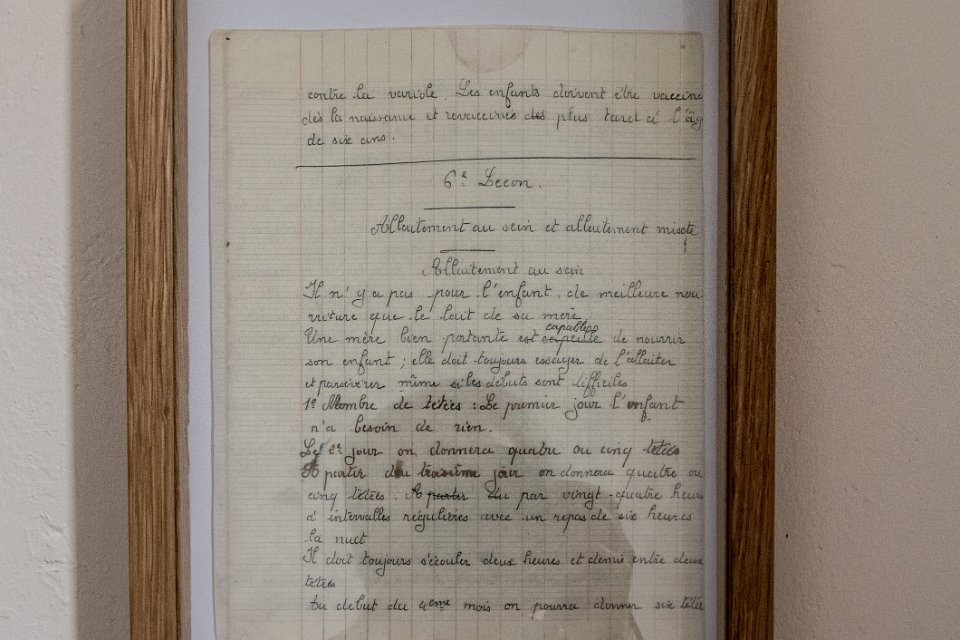 contre la variole. Les enfants doivent être vaccine
dès la naissance et revaccinés des plus tard à l'âg
de six ans.
6e Leçon.
Allaitement au sein et allaitement mixte
Allaitement au sein
Il n'y a pas pour l'enfant de meilleure nou
rriture que le lait de sa mère.
Une mère bien portante est capable de nourrir
son enfant ; elle doit toujours essayer de l'allaiter
et persévérer même si les débuts sont difficiles
1º Nombre de tétées : Le premier jour l'enfant
n'a besoin de rien.
Le 2e jour on donnera quatre ou cinq tétées
A partir du troisième jour on donnera quatre ou
cinq tétées. A partir du par vingt-quatre heure
à intervalles régulières avec un repos de six heures
la nuit
Il doit toujours s'écouler deux heures et demie entre deux
tétées
Au début du 4eme mois on pourra donner six tété